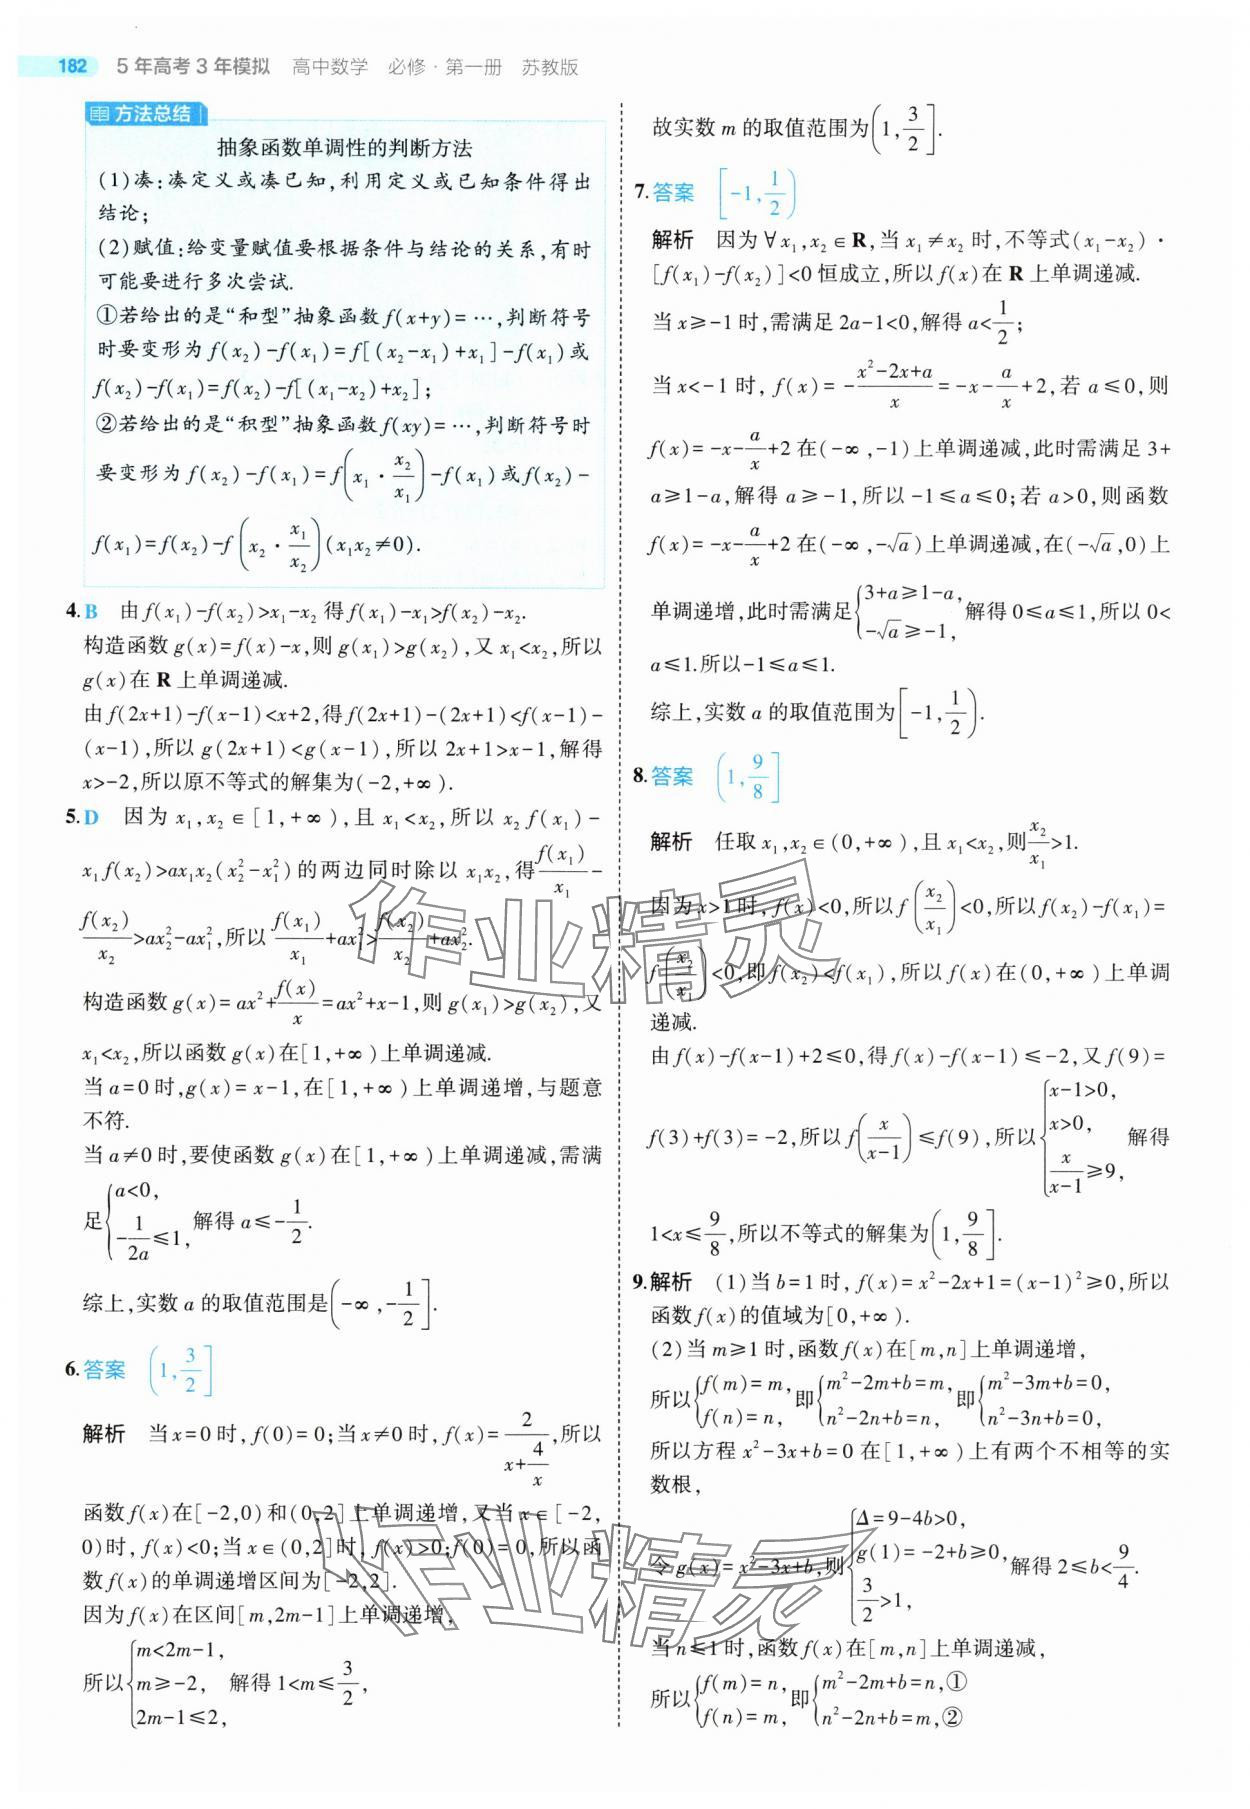 182 5年高考3年模拟 高中数学 必修·第一册 苏教版
方法总结
抽象函数单调性的判断方法
(1)凑:凑定义或凑已知,利用定义或已知条件得出
结论;
(2)赋值:给变量赋值要根据条件与结论的关系,有时
可能要进行多次尝试.
①若给出的是“和型”抽象函数f(x+y)=…,判断符号
时要变形为f(x₂)-f(x₁)=f[(x₂-x₁)+x₁]-f(x₁)或
f(x₂)-f(x₁)=f(x₂)-f[(x₁-x₂)+x₂];
②若给出的是“积型”抽象函数f(xy)=…,判断符号时
要变形为f(x₂)-f(x₁)=f(x₁·x₂/x₁)-f(x₁)或f(x₂)-
f(x₁)=f(x₂)-f(x₂·x₁/x₂)(x₁x₂≠0).
4.B 由f(x₁)-f(x₂)>x₁-x₂得f(x₁)-x₁>f(x₂)-x₂.
构造函数g(x)=f(x)-x,则g(x₁)>g(x₂),又x₁<x₂,所以
g(x)在R上单调递减.
由f(2x+1)-f(x-1)<x+2,得f(2x+1)-(2x+1)<f(x-1)-
(x-1),所以g(2x+1)<g(x-1),所以2x+1>x-1,解得
x>-2,所以原不等式的解集为(-2,+∞).
5.D 因为x₁,x₂∈[1,+∞),且x₁<x₂,所以x₂f(x₁)-
x₁f(x₂)>ax₁x₂(x₂²-x₁²)的两边同时除以x₁x₂,得f(x₁)/x₁-
f(x₂)/x₂>ax₂²-ax₁²,所以f(x₁)/x₁+ax₁²>f(x₂)/x₂+ax₂².
构造函数g(x)=ax²+f(x)/x=ax²+x-1,则g(x₁)>g(x₂),又
x₁<x₂,所以函数g(x)在[1,+∞)上单调递减.
当a=0时,g(x)=x-1,在[1,+∞)上单调递增,与题意
不符.
当a≠0时,要使函数g(x)在[1,+∞)上单调递减,需满
足{a<0, -1/2a≤1, 解得a≤-1/2.
综上,实数a的取值范围是(-∞,-1/2].
6.答案 (1,3/2]
解析 当x=0时,f(0)=0;当x≠0时,f(x)=2/(x+4/x),所以
函数f(x)在[-2,0)和(0,2]上单调递增,又当x∈[-2,
0)时,f(x)<0;当x∈(0,2]时,f(x)>0;f(0)=0,所以函
数f(x)的单调递增区间为[-2,2].
因为f(x)在区间[m,2m-1]上单调递增,
所以{m<2m-1, m≥-2, 2m-1≤2, 解得1<m≤3/2,
故实数m的取值范围为(1,3/2].
7.答案 [-1,1/2)
解析 因为∀x₁,x₂∈R,当x₁≠x₂时,不等式(x₁-x₂)·
[f(x₁)-f(x₂)]<0恒成立,所以f(x)在R上单调递减.
当x≥-1时,需满足2a-1<0,解得a<1/2;
当x<-1时,f(x)=-(x²-2x+a)/x=-x-a/x+2,若a≤0,则
f(x)=-x-a/x+2在(-∞,-1)上单调递减,此时需满足3+
a≥1-a,解得a≥-1,所以-1≤a≤0;若a>0,则函数
f(x)=-x-a/x+2在(-∞,-√a)上单调递减,在(-√a,0)上
单调递增,此时需满足{3+a≥1-a, -√a≥-1, 解得0≤a≤1,所以0<
a≤1.所以-1≤a≤1.
综上,实数a的取值范围为[-1,1/2).
8.答案 (1,9/8]
解析 任取x₁,x₂∈(0,+∞),且x₁<x₂,则x₂/x₁>1.
因为x>1时,f(x)<0,所以f(x₂/x₁)<0,所以f(x₂)-f(x₁)=
f(x₂/x₁)<0,即f(x₂)<f(x₁),所以f(x)在(0,+∞)上单调
递减.
由f(x)-f(x-1)+2≤0,得f(x)-f(x-1)≤-2,又f(9)=
f(3)+f(3)=-2,所以f(x/(x-1))≤f(9),所以{x-1>0, x>0, x/(x-1)≥9, 解得
1<x≤9/8,所以不等式的解集为(1,9/8].
9.解析 (1)当b=1时,f(x)=x²-2x+1=(x-1)²≥0,所以
函数f(x)的值域为[0,+∞).
(2)当m≥1时,函数f(x)在[m,n]上单调递增,
所以{f(m)=m, f(n)=n, 即{m²-2m+b=m, n²-2n+b=n, 即{m²-3m+b=0, n²-3n+b=0,
所以方程x²-3x+b=0在[1,+∞)上有两个不相等的实
数根,
令g(x)=x²-3x+b,则{Δ=9-4b>0, g(1)=-2+b≥0, 3/2>1, 解得2≤b<9/4.
当n≤1时,函数f(x)在[m,n]上单调递减,
所以{f(m)=n, f(n)=m, 即{m²-2m+b=n,① n²-2n+b=m,②
作业精灵
作业精灵